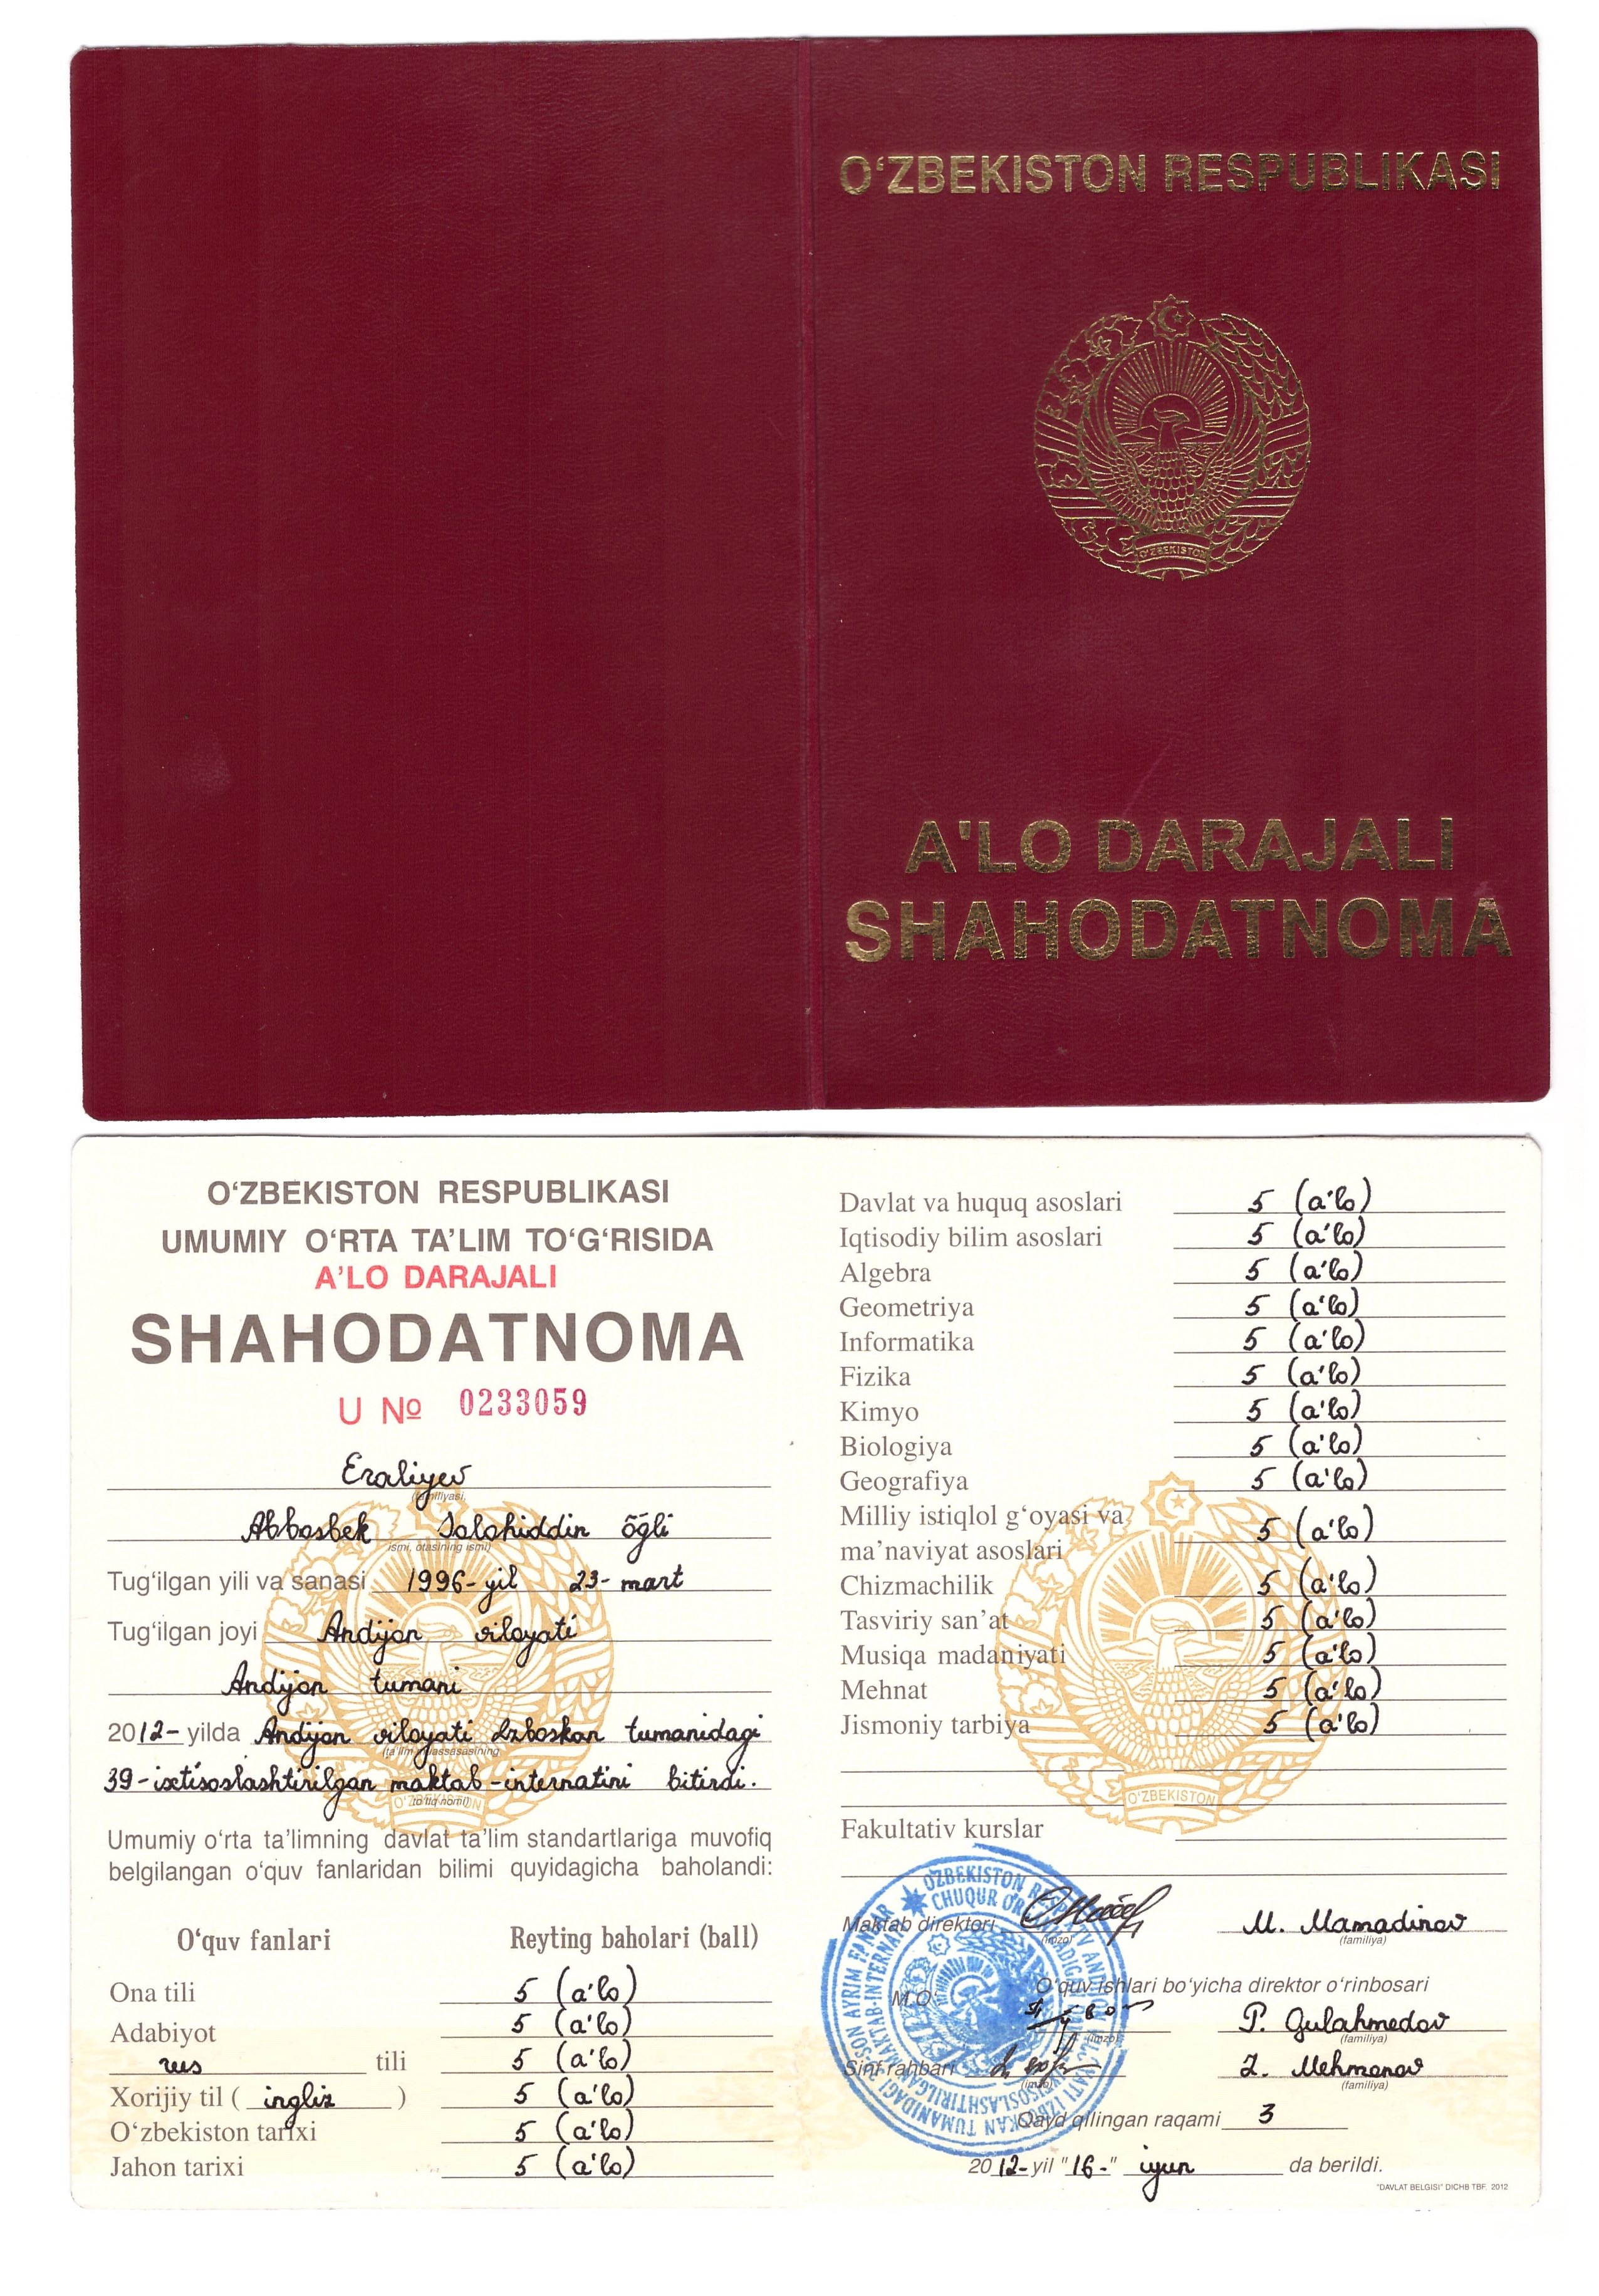 O‘ZBEKISTON RESPUBLIKASI
O‘ZBEKISTON
A'LO DARAJALI
SHAHODATNOMA
O‘ZBEKISTON RESPUBLIKASI
UMUMIY O‘RTA TA’LIM TO‘G‘RISIDA
A’LO DARAJALI
SHAHODATNOMA
U № 0233059
Eraliyev
(familiyasi,
Abbosbek Salohiddin õg̃li
ismi, otasining ismi)
Tug‘ilgan yili va sanasi 1996-yil 23-mart
Tug‘ilgan joyi Andijon viloyati
Andijon tumani
2012- yilda Andijon viloyati Izboskan tumanidagi
(ta’lim muassasasining
39-ixtisoslashtirilgan maktab-internatini bitirdi.
to‘liq nomi)
O‘ZBEKISTON
Umumiy o‘rta ta’limning davlat ta’lim standartlariga muvofiq
belgilangan o‘quv fanlaridan bilimi quyidagicha baholandi:
O‘quv fanlari Reyting baholari (ball)
Ona tili 5 (a'lo)
Adabiyot 5 (a'lo)
rus tili 5 (a'lo)
Xorijiy til ( ingliz ) 5 (a'lo)
O‘zbekiston tarixi 5 (a'lo)
Jahon tarixi 5 (a'lo)
Davlat va huquq asoslari 5 (a'lo)
Iqtisodiy bilim asoslari 5 (a'lo)
Algebra 5 (a'lo)
Geometriya 5 (a'lo)
Informatika 5 (a'lo)
Fizika 5 (a'lo)
Kimyo 5 (a'lo)
Biologiya 5 (a'lo)
Geografiya 5 (a'lo)
Milliy istiqlol g‘oyasi va
ma’naviyat asoslari 5 (a'lo)
Chizmachilik 5 (a'lo)
Tasviriy san’at 5 (a'lo)
Musiqa madaniyati 5 (a'lo)
Mehnat 5 (a'lo)
Jismoniy tarbiya 5 (a'lo)
O‘ZBEKISTON
Fakultativ kurslar
Maktab direktori M. Mamadinov
(imzo) (familiya)
M.O‘.
O‘quv ishlari bo‘yicha direktor o‘rinbosari
P. Gulahmedov
(imzo) (familiya)
Sinf rahbari Z. Mehmonov
(imzo) (familiya)
Qayd qilingan raqami 3
2012-yil "16-" iyun da berildi.
"DAVLAT BELGISI" DICHB TBF, 2012